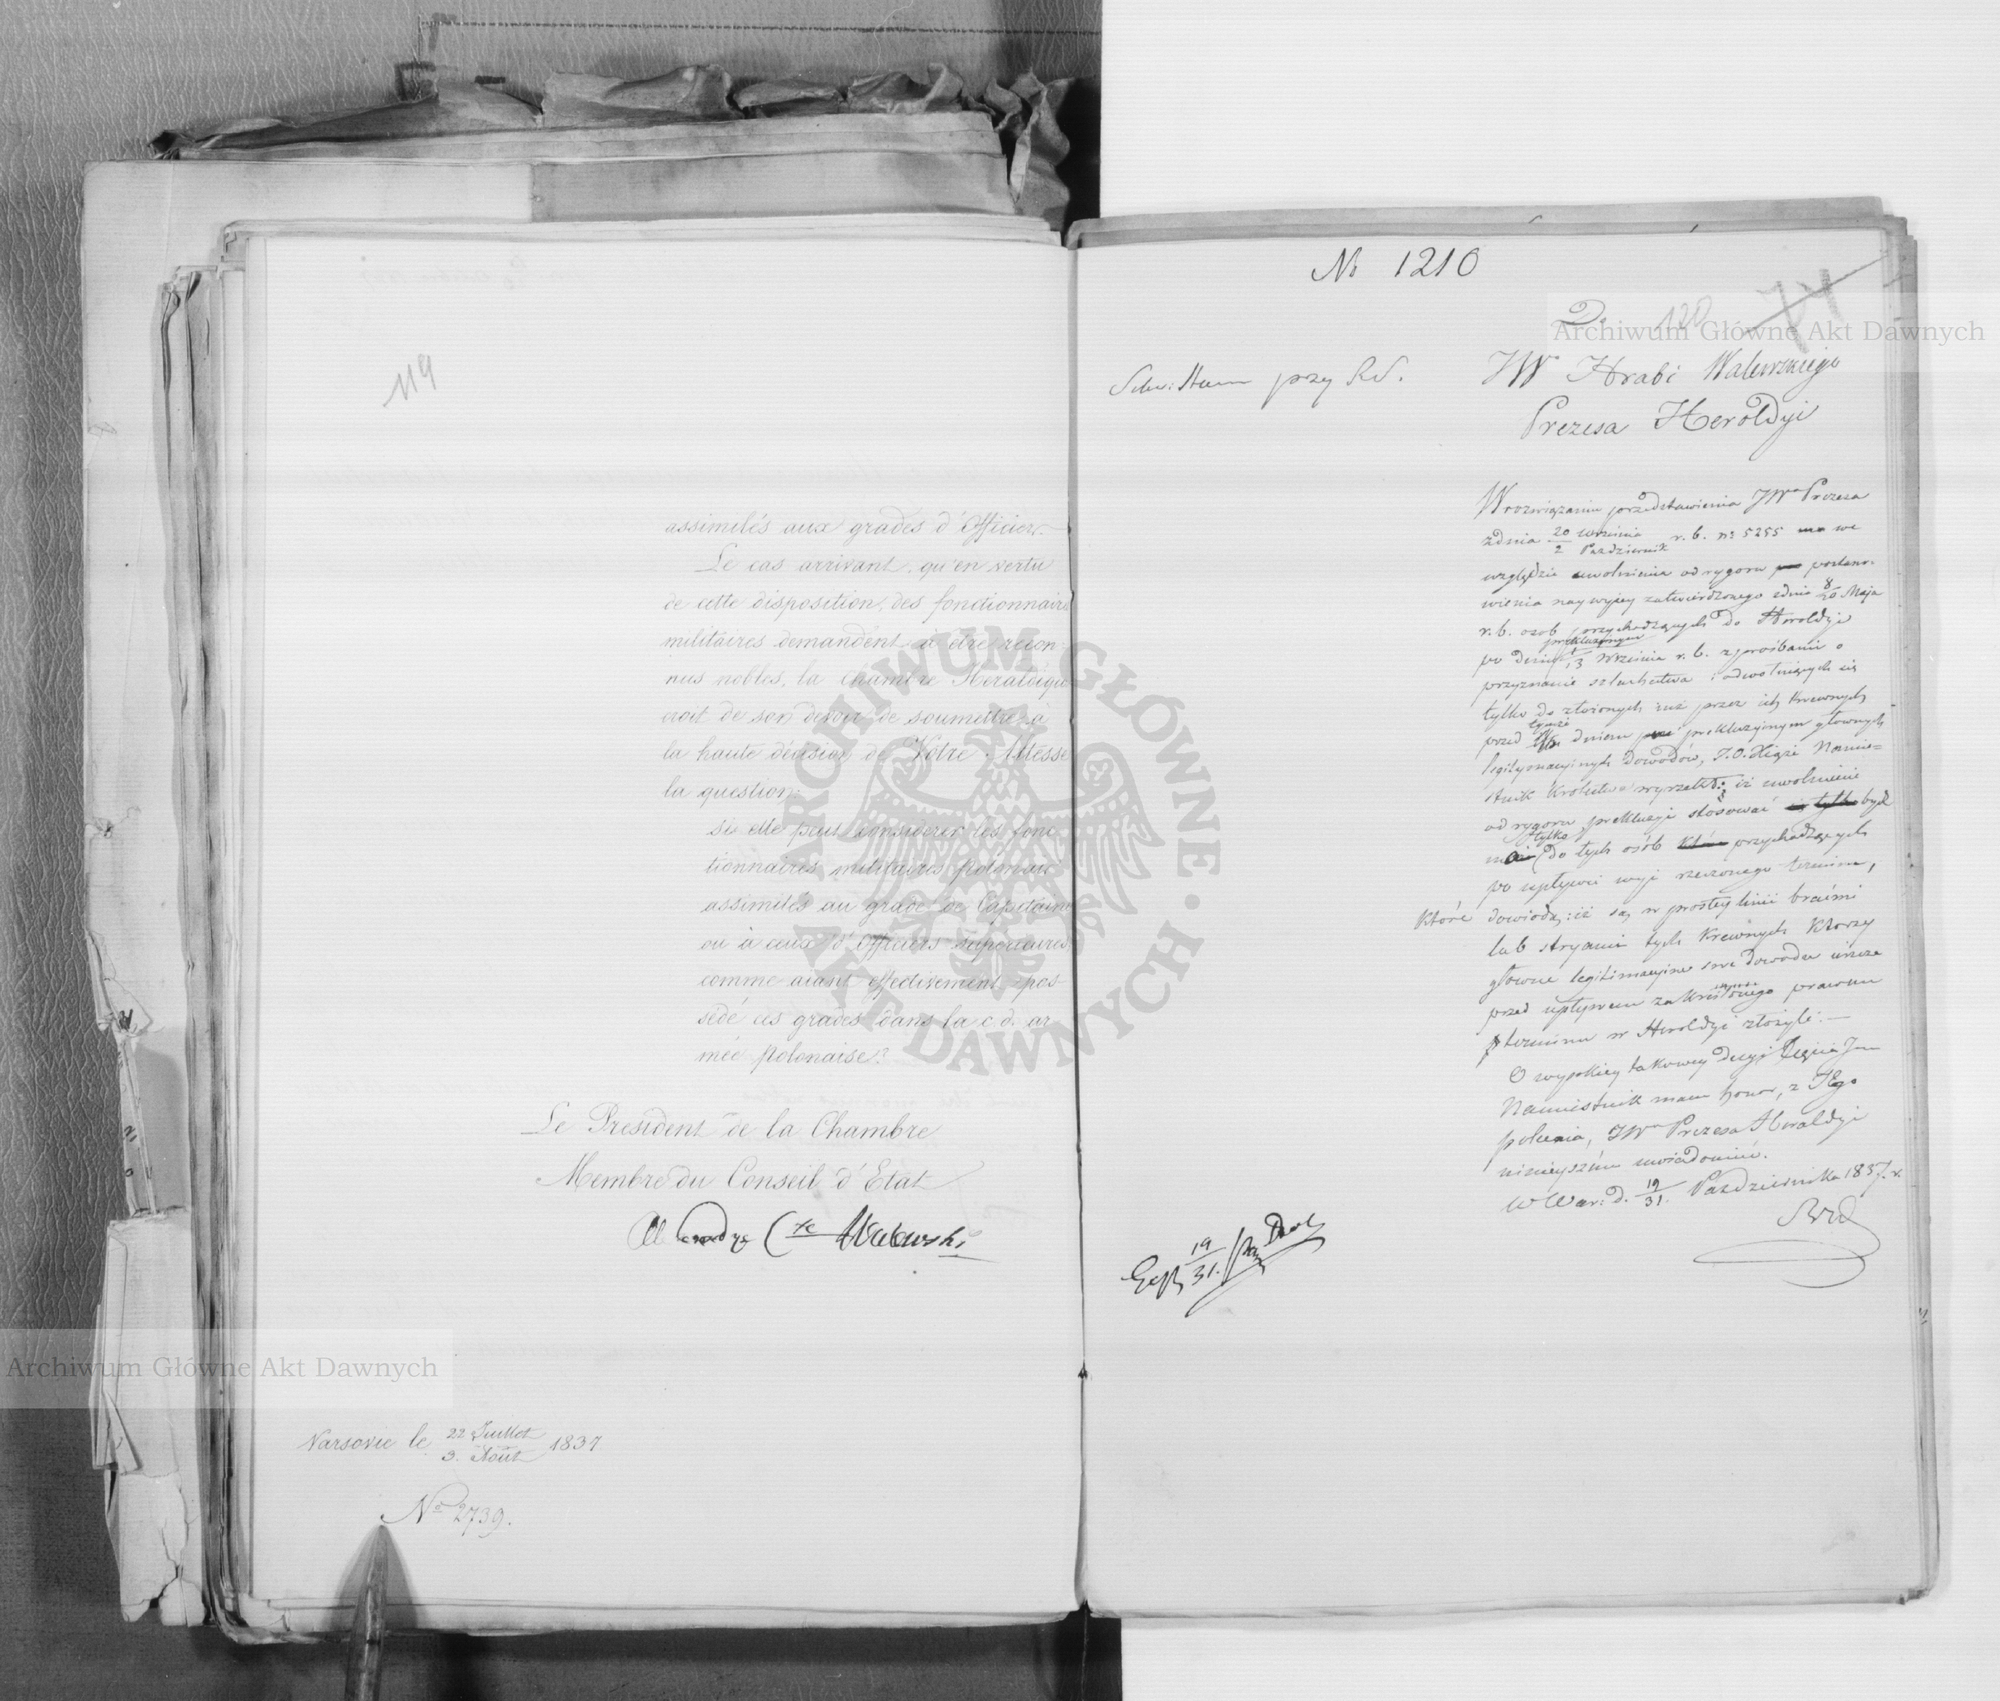 119
assimilés aux grades d'Officier.
Le cas arrivant, qu'en vertu
de cette disposition, des fonctionnaires
militaires demandent à etre recon-
nus nobles, la chambre Heraldique
croit de son devoir de soumettre à
la haute décision de Votre Altesse
la question:
si elle peut considerer les fonc
tionnaires militaires polonais
assimilés au grade de Capitaine
ou à ceux d'Officiers superieures
comme aiant effectivement pos-
sédé ces grades dans la c. d. ar
mée polonaise?
Le President de la Chambre
Membre du Conseil d'Etat
Alexandre Cte Walewski
Varsovie le 22 Juillet / 3. Août 1837
No 2739.
No 1210
Do
120
74
przy
JWo Hrabi Walewskiego
Prezesa Heroldyi
W rozwiązaniu przedstawienia JWo Prezesa
z dnia 20 Września / 2 Październik r. b. no 5255 we
względzie uwolnienia od rygoru postano-
wienia naywyżey zatwierdzonego z dnia 8/20 Maja
r. b. osób przychodzących do Heroldyi
po dniu preklużynym 1/13 Września r. b. z prośbami o
przyznanie szlachetwa : odwołuiących się
tylko do złożonych iuż przez ich krewnych
przed tymże dniem preklużyinym głównych
legitymacyinych dowodów, J. O. Xiąże Namie-
stnik Królestwa wyrzekł: iż uwolnienie
od rygoru prekluzyi stosować być
ma tylko do tych osób przychodzących
po upływie wyż rzeczonego terminu,
które dowiodą: iż są w prostey linii braćmi
lub stryiami tych krewnych którzy
główne legitimacyine swe dowody ieszcze
przed upływem zakreślonego prawem
terminu w Heroldyi złożyli: —
O wysokiey takowey decyzi Xięcia Jmci
Namiestnik mam honor, z Jego
polecenia, JWo Prezesa Heroldyi
ninieyszém uwiadomić.
W War: d. 19/31. Października 1837. r.
19/31.
Archiwum Główne Akt Dawnych
Archiwum Główne Akt Dawnych
ARCHIWUM GŁÓWNE · AKT DAWNYCH ·